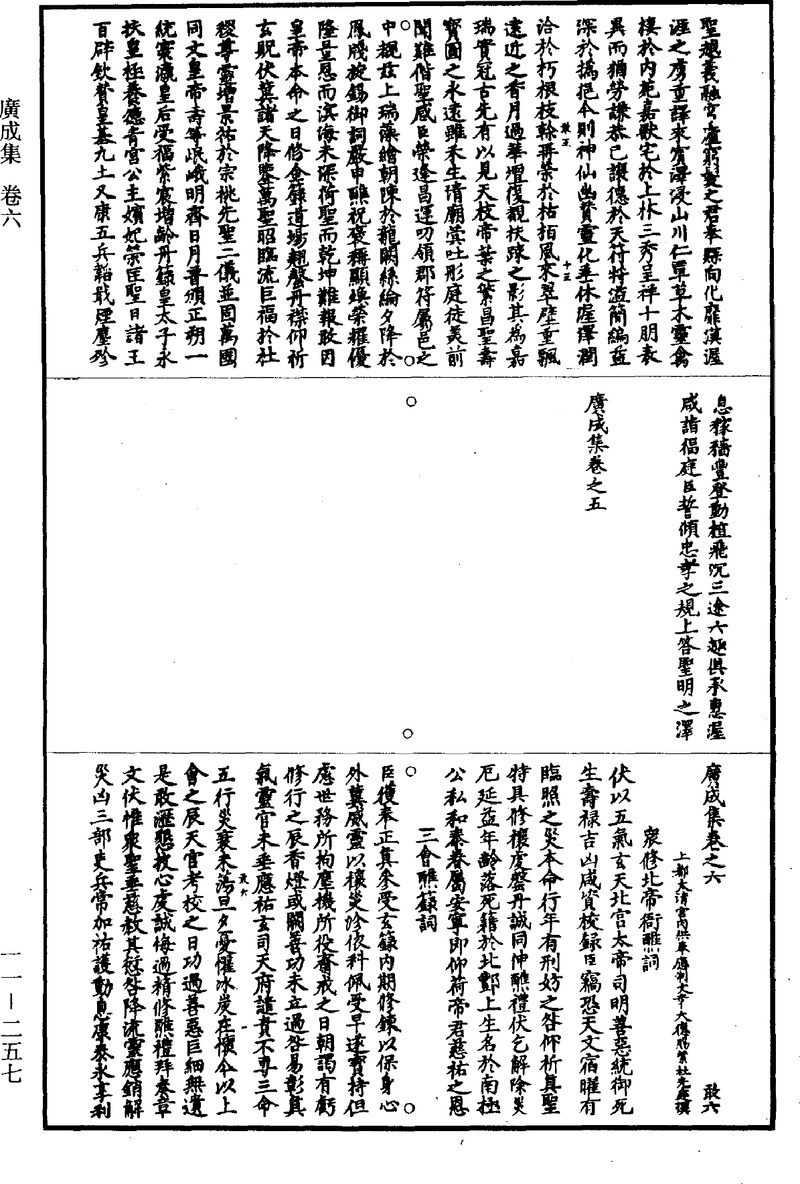 廣成集 卷六
聖超義融玄虛窮變之君奉縣向化靡漢渥
涯之虜重譯來賓澤浸山川仁覃草木靈禽
棲於內苑嘉獸宅於上林三秀呈祥十朋表
異而猶勞謙恭己讓德於天符特汲簡編益
深於撝挹今則神仙幽贊靈化垂休渥澤潤
洽於朽根枝榦再榮於枯柏風來翠壁重飄
遠近之香月過華壇復覩扶疎之影其為嘉
瑞實冠古先有以見天枝帝葉之繁昌聖壽
寶圖之永遠雖禾生清廟蓂吐彤庭徒美前
聞難偕聖感臣榮逢昌運叨領郡符屬邑之
中覩茲上瑞藻繪朝陳於龍闕絲綸夕降於
鳳掖旋錫御詞嚴申醮祝褒稱顯煥榮耀優
隆量恩而溟海未深荷聖而乾坤難報敢因
皇帝本命之日修金籙道場翹罄丹襟仰祈
玄貺伏冀諸天降鑒萬聖昭臨流巨福於社
稷尊靈增景祐於宗祧先聖二儀並固萬國
同文皇帝壽等岷峨明齊日月普頒正朔一
統寰瀛皇后受福紫宸增齡丹籙皇太子永
扶皇極養德青宮公主嬪妃榮匡聖日諸王
百辟欽贊皇基九土乂康五兵韜戢煙塵殄
息稼穡豐登動植飛沉三途六趣俱承惠渥
咸詣福庭臣誓傾忠孝之規上答聖明之澤
廣成集卷之五
廣成集卷之六
敢六
上都太清宮內供奉應制文章大德賜紫杜光庭撰
眾修北帝衙醮詞
伏以五氣玄天北宮太帝司明善惡統御死
生壽祿吉凶咸資校錄臣竊恐天文宿曜有
臨照之災本命行年有刑妨之咎仰祈真聖
特具修禳虔罄丹誠同伸醮禮伏乞解除災
厄延益年齡落死籍於北酆上生名於南極
公私和泰眷屬安寧即仰荷帝君慈祐之恩
三會醮籙詞
臣獲奉正真參受玄籙內期修鍊以保身心
外冀威靈以禳災沴依科佩受早遂寶持但
慮世務所拘塵機所役齋戒之日朝謁有虧
修行之辰香燈或闕善功未立過咎易彰真
氣靈官未垂應祐玄司天府譴責不尋三命
五行災衰未蕩旦夕憂懼冰炭在懷今以上
會之辰天官考校之日功過善惡巨細無遺
是敢瀝懇披心虔誠悔過精修醮禮拜奏章
文伏惟眾聖垂慈赦其愆咎降流靈應銷解
災凶三部吏兵常加祐護動息康泰永享利
一一－二五七